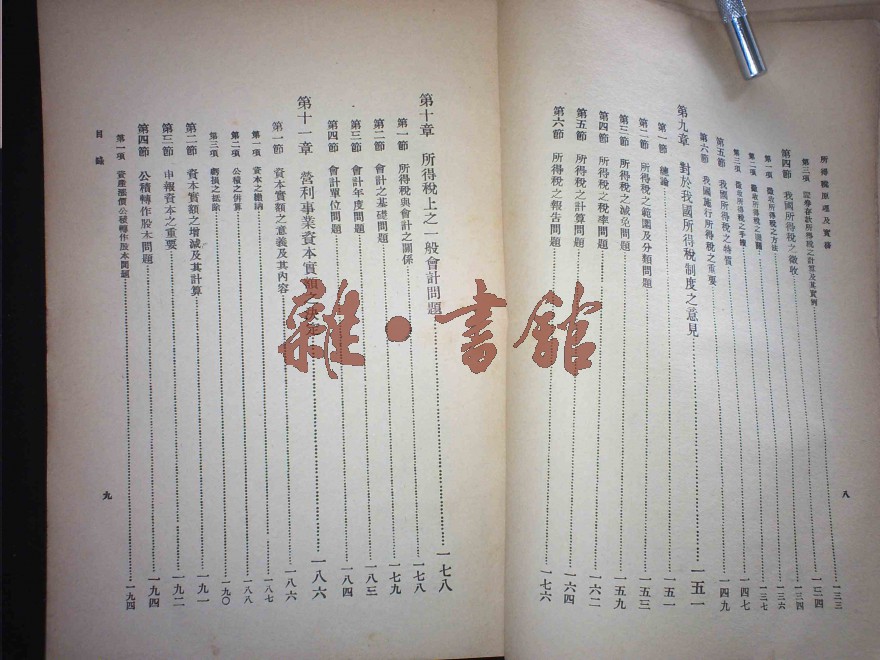 所得稅原理及實務
第三項 證券存款所得稅之計算及其實例……一三三
第四節 我國所得稅之徵收……一三四
第一項 徵收所得稅之方法……一三四
第二項 徵收所得稅之機關……一三六
第三項 徵收所得稅之手續……一三七
第五節 我國所得稅之特質……一四七
第六節 我國施行所得稅之重要……一四九
第九章 對於我國所得稅制度之意見……一五一
第一節 總論……一五一
第二節 所得稅之範圍及分類問題……一五三
第三節 所得稅之減免問題……一五九
第四節 所得稅之稅率問題……一六二
第五節 所得稅之計算問題……一六四
第六節 所得稅之報告問題……一七六
八
第十章 所得稅上之一般會計問題……一七八
第一節 所得稅與會計之關係……一七八
第二節 會計之基礎問題……一七九
第三節 會計年度問題……一八三
第四節 會計單位問題……一八四
第十一章 營利事業資本實額之決定……一八六
第一節 資本實額之意義及其內容……一八六
第一項 資本之繳納……一八七
第二項 公積之併算……一八八
第三項 虧損之抵除……一九〇
第二節 資本實額之增減及其計算……一九一
第三節 申報資本之重要……一九二
第四節 公積轉作股本問題……一九四
第一項 資產漲價公積轉作股本問題……一九四
目錄
九
雜·書館